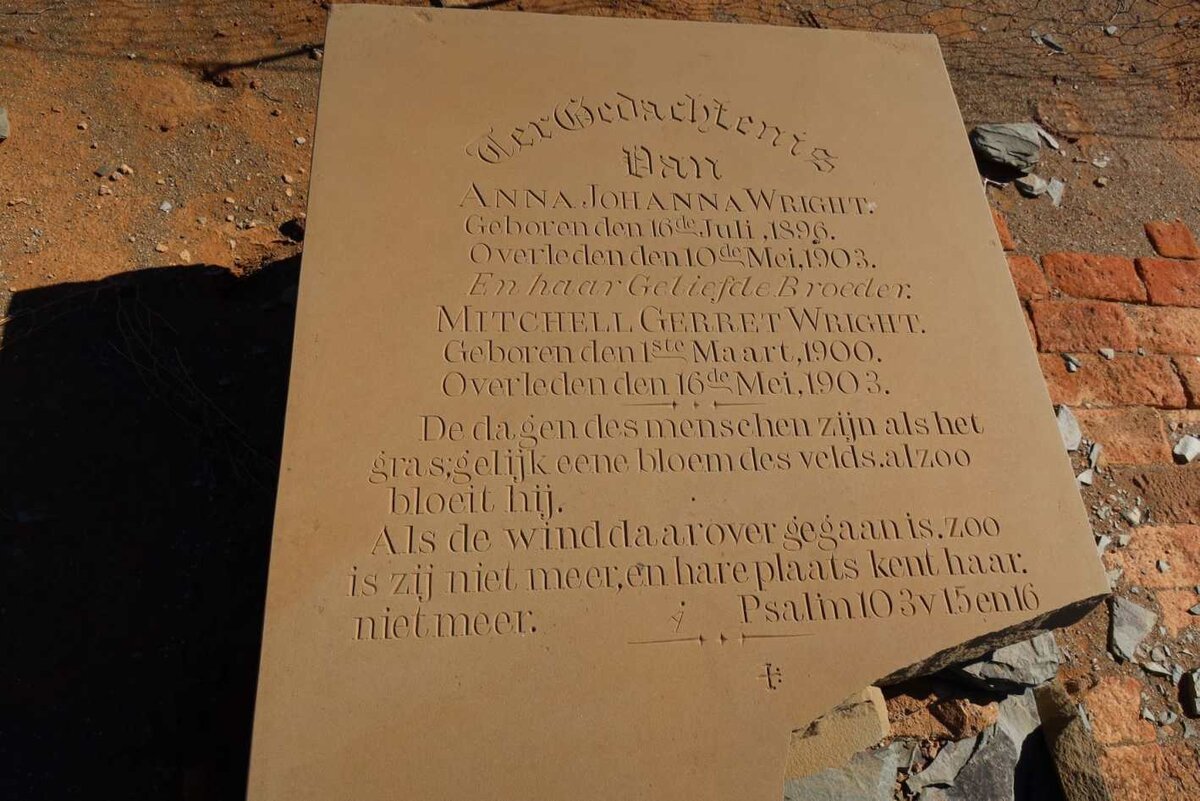 Ter Gedachtenis
Van
ANNA JOHANNA WRIGHT.
Geboren den 16de Juli, 1896.
Overleden den 10de Mei, 1903.
En haar Geliefde Broeder.
MITCHELL GERRET WRIGHT.
Geboren den 1ste Maart, 1900.
Overleden den 16de Mei, 1903.
De dagen des menschen zijn als het
gras; gelijk eene bloem des velds. alzoo
bloeit hij.
Als de wind daarover gegaan is. zoo
is zij niet meer, en hare plaats kent haar.
niet meer.
Psalm 103 v 15 en 16